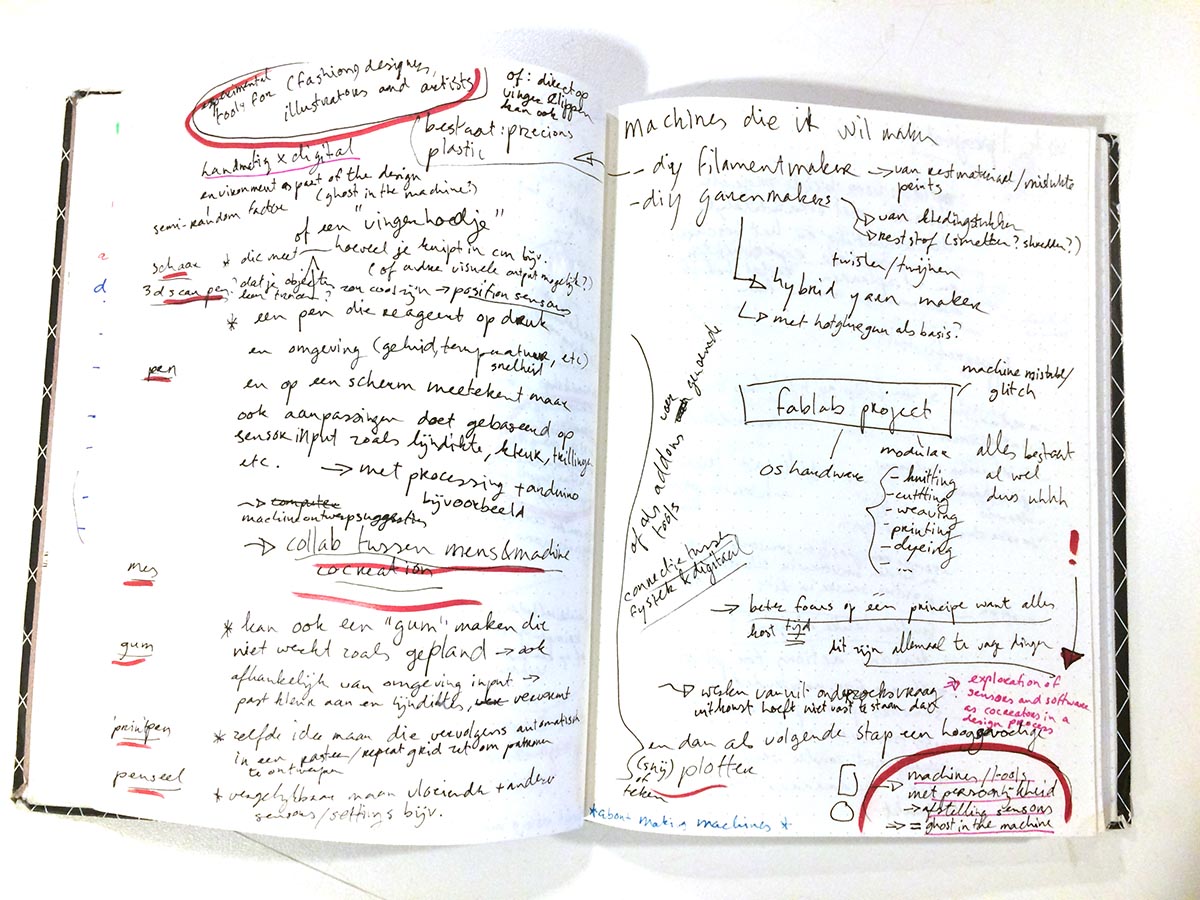 experimental
tools for (fashion) designers,
illustrators and artists
of: direct op
vinger klippen
kan ook
bestaat: precious
plastic
handmatig x digital
environment as part of the design
(ghost in the machine?)
semi-random factor
of een "vingerhoedje"
schaar
* die meet hoeveel je knipt in cm bijv.
(of andere visuele output mogelijk?)
3d scan pen?
dat je objecten
kan tracen?
zou cool zijn → position sensors
pen
* een pen die reageert op druk
en omgeving (geluid, temperatuur, etc)
snelheid
en op een scherm meetekent maar
ook aanpassingen doet gebaseerd op
sensor input zoals lijndikte, kleur, trillingen
etc. → met processing + arduino
bijvoorbeeld
→ computer
machine ontwerpsuggesties
→ collab tussen mens & machine
cocreation
mes
gum
* kan ook een "gum" maken die
niet werkt zoals gepland → ook
afhankelijk van omgeving input →
past kleur aan en lijndikte, vervormt
printpen
* zelfde idee maar die vervolgens automatisch
in een raster/repeat grid zet om patronen
te ontwerpen
penseel
* vergelijkbaar maar vloeiender + andere
sensors/settings bijv.
machines die ik wil maken
- diy filamentmaker → van restmateriaal/mislukte
prints
- diy garenmakers
→ van kledingstukken
→ reststof (smelten? shredden?)
twisten/twijnen
→ hybrid yarn maker
→ met hotgluegun als basis?
of als addons voor geroemde
tools
connectie tussen
fysiek & digitaal
fablab project
machine mistake/
glitch
os hardware
modulair
- knitting
- cutting
- weaving
- printing
- dyeing
- ...
alles bestaat
al wel
dus uhhh
!
→ beter focus op één principe want alles
kost tijd
dit zijn allemaal te vage dingen
→ werken vanuit onderzoeksvraag
uitkomst hoeft niet vast te staan dan
→ exploration of
sensors and software
as cocreators in a
design process
en dan als volgende stap een hooggevoelige
(snij) plotter
of
teken
→ machines/tools
met persoonlijkheid
→ afstelling sensors
→ = ghost in the machine
* about making machines *